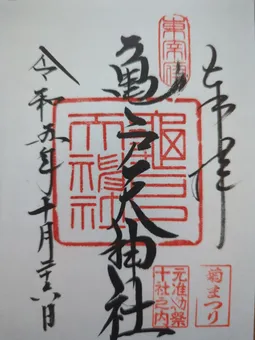 奉拝
東宰府
亀戸天神社
亀戸天神社
菊まつり
元准勅祭
十社之内
令和五年十一月十六日